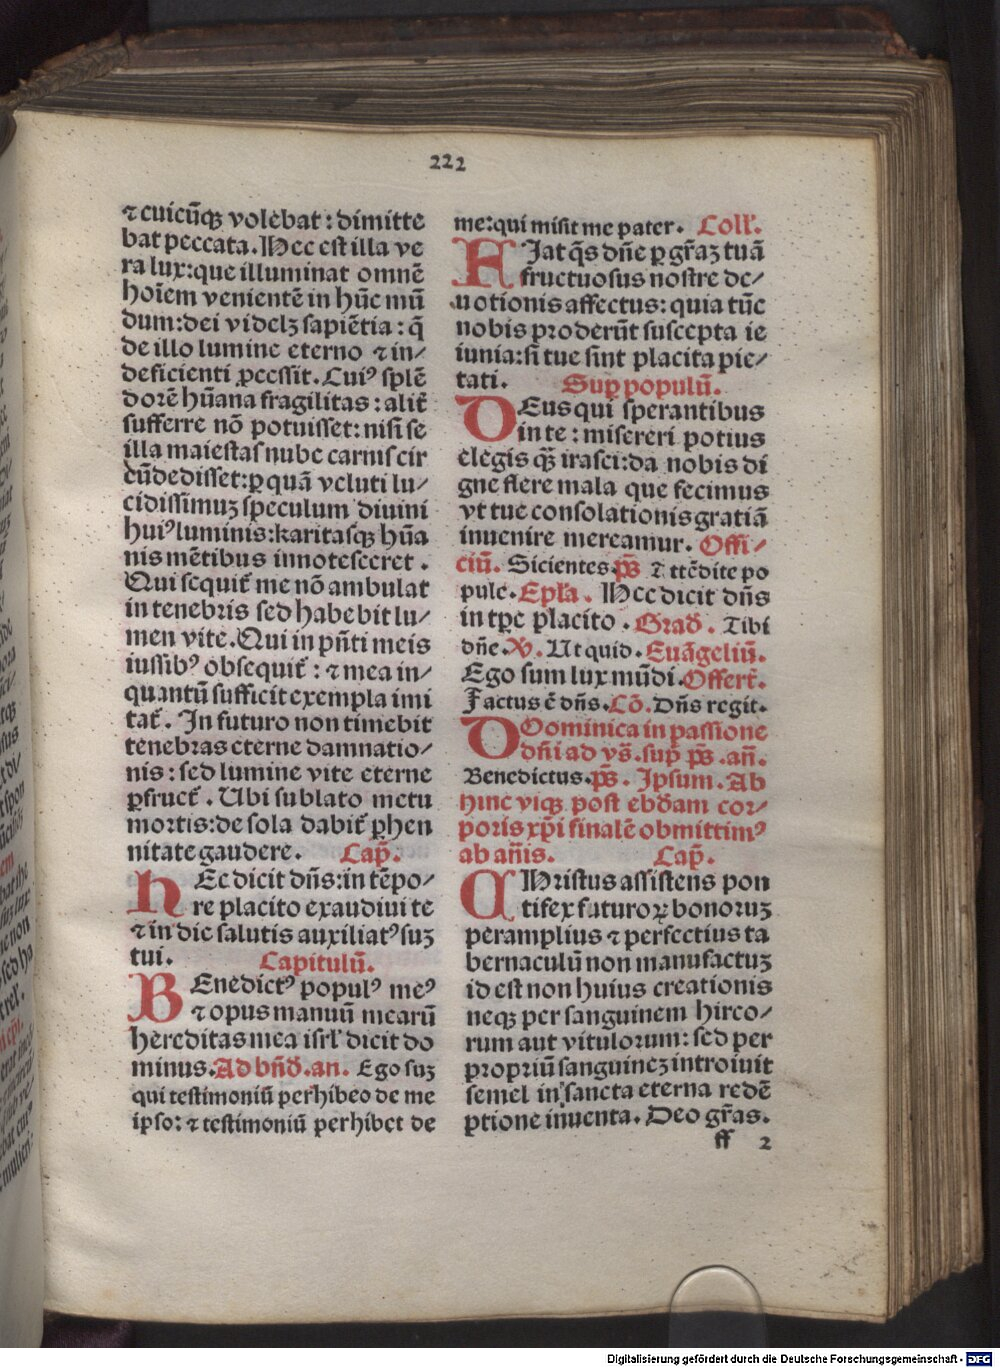 222
⁊ cuicūqꝫ volebat : dimitte
bat peccata. Hec est illa ve
ra lux:que illuminat omnē
hoīem venientē in hūc mū
dum:dei videlꝫ sapiētia : q̄
de illo lumine eterno ⁊ in/
deficienti ꝓcessit. Cuiꝰ splē
dorē hūana fragilitas : alit᷑
sufferre nō potuisset: nisi se
illa maiestas nube carnis cir
cūdedisset:ꝑ quā veluti lu/
cidissimuꝫ speculum diuini
huiꝰ luminis:karitasqꝫ hūa
nis mētibus innotesceret .
Qui sequit᷑ me nō ambulat
in tenebris sed habebit lu/
men vite. Qui in pn̄ti meis
iussibꝰ obsequit᷑ : ⁊ mea in/
quantū sufficit exempla imi
tat᷑. In futuro non timebit
tenebras eterne damnatio/
nis : sed lumine vite eterne
ꝑfruet᷑ . Ubi sublato metu
mortis:de sola dabit᷑ ꝑhen
nitate gaudere. Cap̄.
HEc dicit dn̄s:in tēpo/
re placito exaudiui te
⁊ in die salutis auxiliatꝰ suꝫ
tui. Capitulū.
BEnedictꝰ populꝰ meꝰ
⁊ opus manuū mearū
hereditas mea isrl̄ dicit do
minus. Ad bn̄d̄. an. Ego suꝫ
qui testimoniū perhibeo de me
ipso: ⁊ testimoniū perhibet de
me:qui misit me pater. Coll᷑.
FIat q̄s dn̄e ꝑ gr̄aꝫ tuā
fructuosus nostre de/
uotionis affectus: quia tūc
nobis proderūt suscepta ie
iunia:si tue sint placita pie/
tati. Suꝑ populū.
DEus qui sperantibus
in te : misereri potius
elegis qꝫ̄ irasci:da nobis di
gne flere mala que fecimus
vt tue consolationis gratiā
inuenire mereamur. Offi/
ciū. Sicientes. pš Attēdite po
pule. Epl̄a . Hec dicit dn̄s
in tꝑe placito . Grad̄ . Tibi
dn̄e. v̄. Ut quid. Euāgeliū.
Ego sum lux mūdi. Offert᷑.
Factus ē dn̄s. Cō. Dn̄s regit.
DOominica in passione
dn̄i ad vš. suꝑ pš. an̄.
Benedictus. pš. Ipsum. Ab
hinc vsqꝫ post ebd̄am cor/
poris xp̄i finalē obmittimꝰ
ab an̄is. Cap̄.
CHristus assistens pon
tifex futuroꝝ bonoruꝫ
peramplius ⁊ perfectius ta
bernaculū non manufactuꝫ
id est non huius creationis
neqꝫ per sanguinem hirco/
rum aut vitulorum: sed per
propriū sanguineꝫ introiuit
semel in sancta eterna redē
ptione inuenta. Deo gr̄as.
ff 2
Digitalisierung gefördert durch die Deutsche Forschungsgemeinschaft - DFG